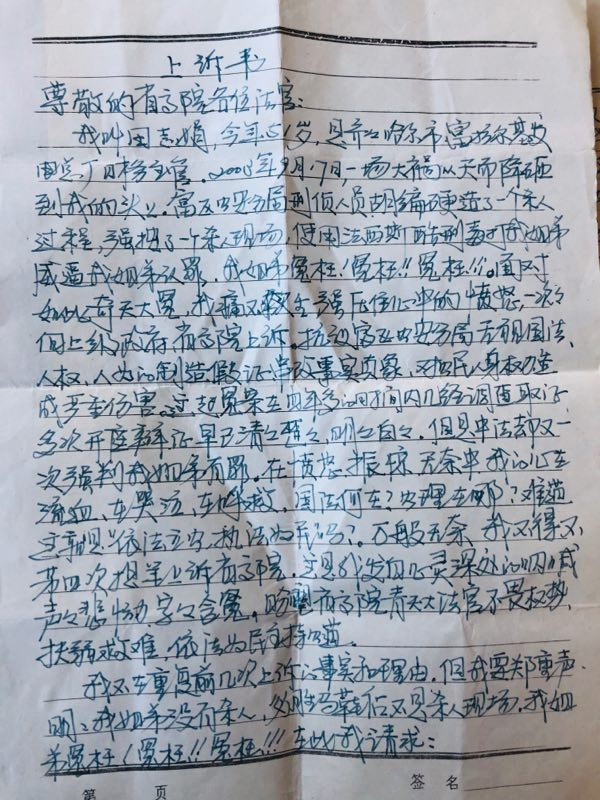 上诉书
尊敬的省高院各位法官:
我叫国志娟,今年51岁,是齐齐哈尔市富拉尔基教
日,一场大祸从天而降砸
到我的头上。富区公安分局刑侦人员胡编硬造了一个杀人
过程,强按了一个杀人现场,使用法西斯酷刑毒打我姐弟
威逼我姐弟认罪。我姐弟冤枉!冤枉!!冤枉!!!面对
如此奇天大冤,我痛不欲生,强压住心中的愤怒,一次次
向上级政府,省高院上诉。抗议富区公安分局无视国法、
人权,人为的制造假证,串改事实真象,对公民人身权力造
成严重伤害。这起冤案在四年多的时间内几经调查取证
多次开庭辩证早已清清楚楚、明明白白。但是中法却又一
次强判我姐弟有罪。在愤怒、振惊、无奈中我的心在
流血、在哭泣、在呼救。国法何在?公理在哪?难道
这就是“依法立安,执法为民吗”?万般无奈,我不得不
第四次提笔上诉省高院。这是我发自心灵深处的呐喊
声声悲怮,字字含冤,盼望省高院青天大法官不畏权势,
扶弱救难,依法为民主持公道。
我不在重复前几次上诉的事实和理由,但我要郑重声
明:我姐弟没有杀人,不是杀人现场。我姐
弟冤枉!冤枉!!冤枉!!!在此我请求:
第 页
签 名